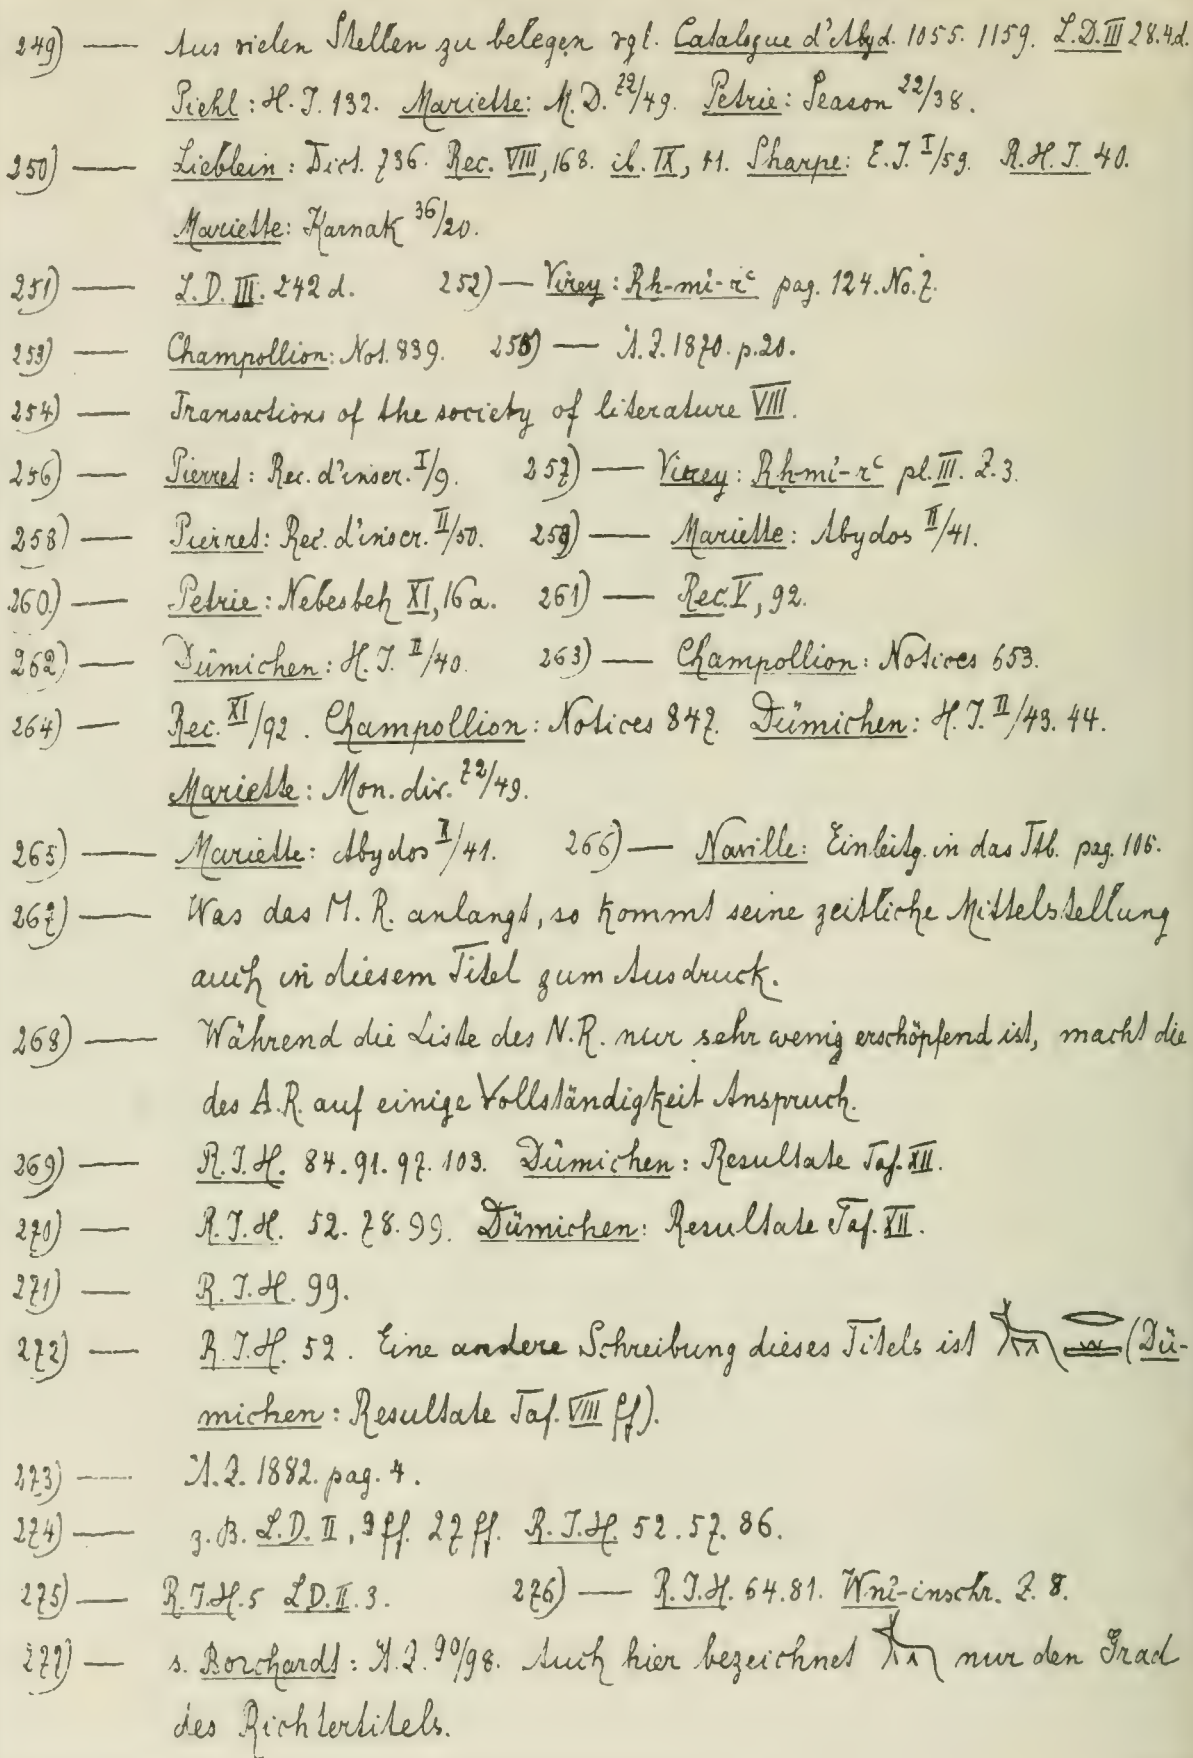 249) — Aus vielen Stellen zu belegen vgl. Catalogue d'Abyd. 1055. 1159. L.D. III 28.4d.
Piehl: H. I. 132. Mariette: M. D. 72/49. Petrie: Season 22/38.
250) — Lieblein: Dict. 736. Rec. VIII, 168. ib. IX, 41. Sharpe: E. I. I/59. R. H. I. 40.
Mariette: Karnak 36/20.
251) — L. D. III. 242 d. 252) — Virey: Rh-mi-rꜥ pag. 124. No. 7.
253) — Champollion: Not. 839. 255) — A. Z. 1870. p. 20.
254) — Transactions of the society of literature VIII.
256) — Pierret: Rec. d'inscr. I/9. 257) — Virey: Rh-mi-rꜥ pl. III. Z. 3.
258) — Pierret: Rec. d'inscr. II/50. 259) — Mariette: Abydos II/41.
260) — Petrie: Nebesheh XI, 16a. 261) — Rec. V, 92.
262) — Dümichen: H. I. II/40. 263) — Champollion: Notices 653.
264) — Rec. XI/92. Champollion: Notices 847. Dümichen: H. I. II/43. 44.
Mariette: Mon. div. 72/49.
265) — Mariette: Abydos II/41. 266) — Naville: Einleitg. in das Ttb. pag. 106.
267) — Was das M. R. anlangt, so kommt seine zeitliche Mittelstellung
auch in diesem Titel zum Ausdruck.
268) — Während die Liste des N. R. nur sehr wenig erschöpfend ist, macht die
des A. R. auf einige Vollständigkeit Anspruch.
269) — R. I. H. 84. 91. 97. 103. Dümichen: Resultate Taf. XII.
270) — R. I. H. 52. 78. 99. Dümichen: Resultate Taf. XII.
271) — R. I. H. 99.
272) — R. I. H. 52. Eine andere Schreibung dieses Titels ist (Dü-
michen: Resultate Taf. VIII ff).
273) — A. Z. 1882. pag. 4.
274) — z. B. L. D. II, 3 ff. 27 ff. R. I. H. 52. 57. 86.
275) — R. I. H. 5 L D. II. 3. 276) — R. I. H. 64. 81. Wni-inschr. Z. 8.
277) — s. Borchardt: A. Z. 90/98. Auch hier bezeichnet nur den Grad
des Richtertitels.